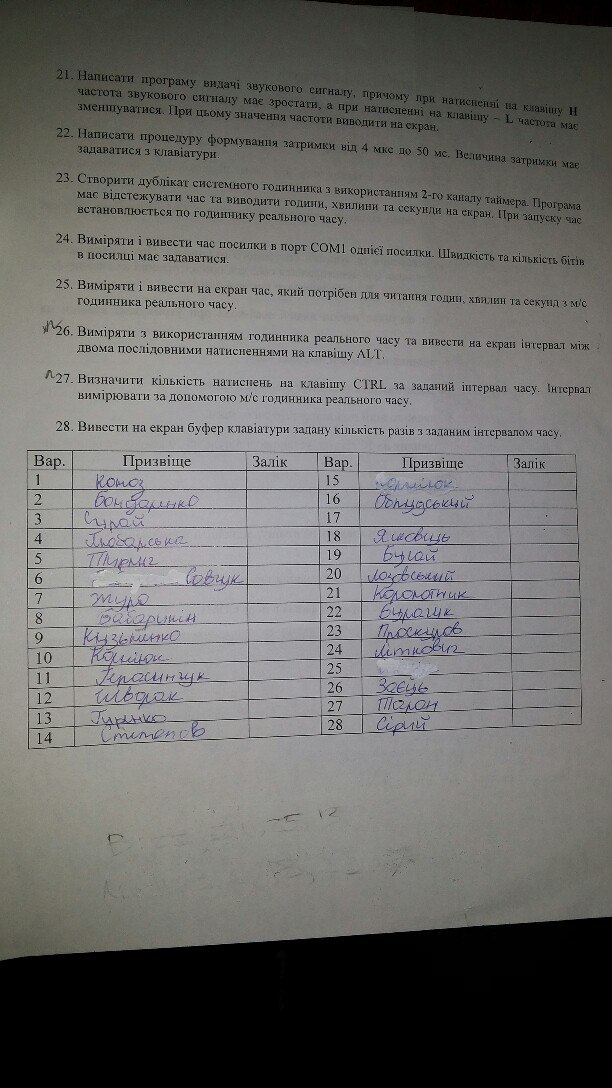 21. Написати програму видачі звукового сигналу, причому при натисненні на клавішу H
частота звукового сигналу має зростати, а при натисненні на клавішу – L частота має
зменшуватися. При цьому значення частоти виводити на екран.
22. Написати процедуру формування затримки від 4 мкс до 50 мс. Величина затримки має
задаватися з клавіатури.
23. Створити дублікат системного годинника з використанням 2-го каналу таймера. Програма
має відстежувати час та виводити години, хвилини та секунди на екран. При запуску час
встановлюється по годиннику реального часу.
24. Виміряти і вивести час посилки в порт COM1 однієї посилки. Швидкість та кількість бітів
в посилці має задаватися.
25. Виміряти і вивести на екран час, який потрібен для читання годин, хвилин та секунд з м/с
годинника реального часу.
26. Виміряти з використанням годинника реального часу та вивести на екран інтервал між
двома послідовними натисненнями на клавішу ALT.
27. Визначити кількість натиснень на клавішу CTRL за заданий інтервал часу. Інтервал
вимірювати за допомогою м/с годинника реального часу.
28. Вивести на екран буфер клавіатури задану кількість разів з заданим інтервалом часу.
Вар. Призвіще Залік Вар. Призвіще Залік
1 Коноз 15
2 Бондаренко 16
3 17
4 Любарська 18 Яковець
5 19 Бугай
6 Савчук 20 Лозовський
7 Журо 21 Коромотник
8 22
9 Кузьменко 23 Проскуров
10 24 Літкович
11 Герасимчук 25
12 Шворак 26 Заєць
13 Гуренко 27 Таран
14 Степанов 28 Сірий